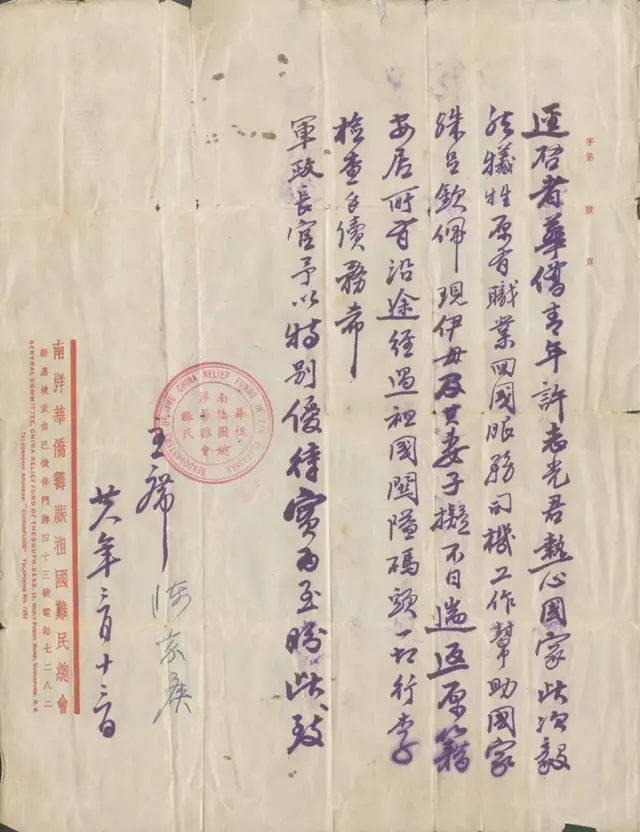 字第 號 頁
逕启者華僑青年許志光君熱心國家此次毅
然犧牲原有職業回國服務司機工作幫助國家
殊足欽佩現伊母及其妻子擬不日遄返原籍
安居所有沿途經過祖國關隘碼頭一切行李
檢查手續務希
軍政長官予以特别優待實为至盼此致
OF THE CHINA RELIEF FUNDS IN THE
主席 陳嘉庚
廿八年三月十三日
南洋華僑籌賑祖國難民總會
新嘉坡武吉巴梭律門牌四十三號電話七二八二
GENERAL COMMITTEE, CHINA RELIEF FUND OF THE SOUTH SEAS, 43, BUKIT PASOH ROAD, SINGAPORE, S. S.
TELEGRAPHIC ADDRESS: "CHINAFUND" TELEPHONE NO. 7282